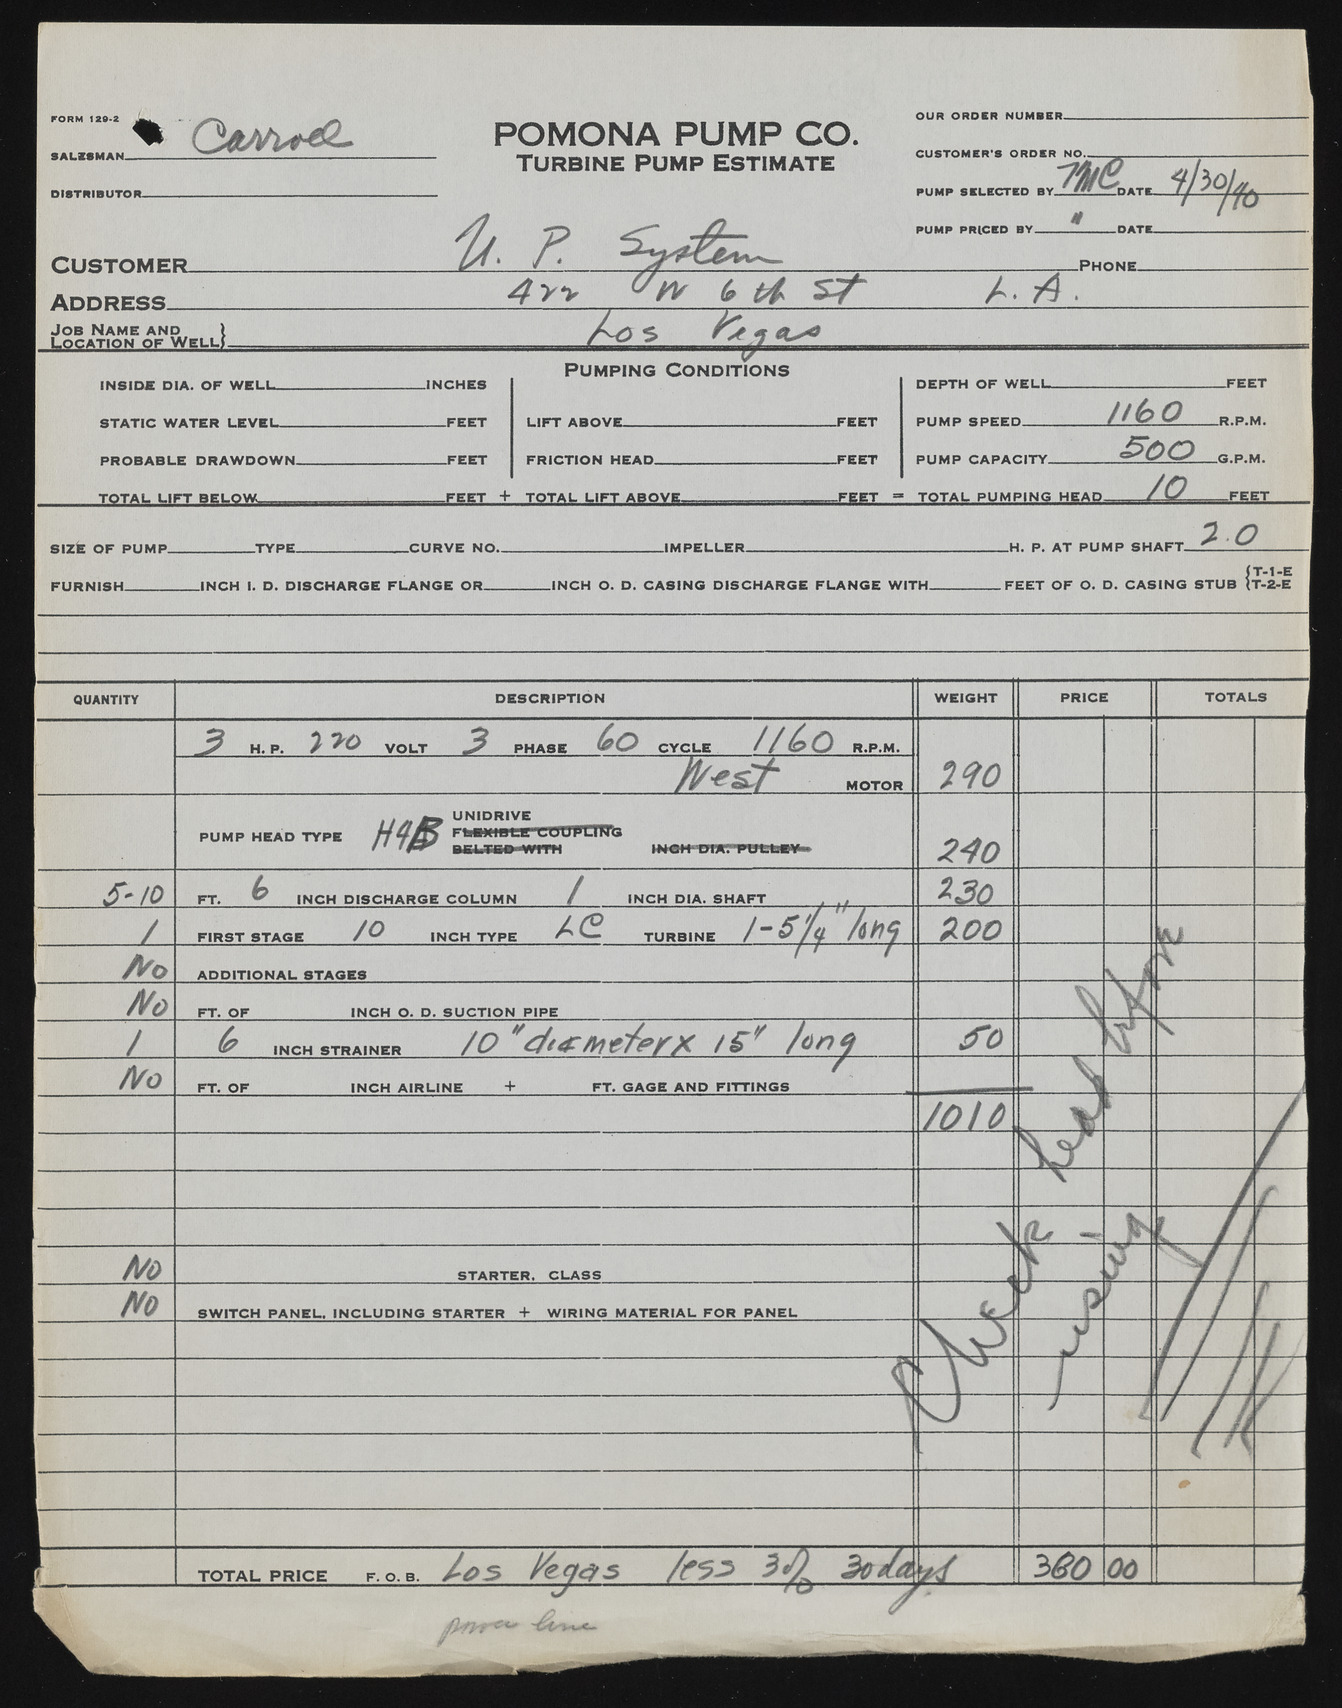 FORM 129-2
SALESMAN Carroll
DISTRIBUTOR
POMONA PUMP CO.
TURBINE PUMP ESTIMATE
OUR ORDER NUMBER
CUSTOMER'S ORDER NO.
PUMP SELECTED BY TMC DATE 4/30/40
PUMP PRICED BY " DATE
CUSTOMER U. P. System PHONE
ADDRESS 422 W 6th St L. A.
JOB NAME AND LOCATION OF WELL} Los Vegas
PUMPING CONDITIONS
INSIDE DIA. OF WELL INCHES
STATIC WATER LEVEL FEET
PROBABLE DRAWDOWN FEET
LIFT ABOVE FEET
FRICTION HEAD FEET
DEPTH OF WELL FEET
PUMP SPEED 1160 R.P.M.
PUMP CAPACITY 500 G.P.M.
TOTAL LIFT BELOW FEET + TOTAL LIFT ABOVE FEET = TOTAL PUMPING HEAD 10 FEET
SIZE OF PUMP TYPE CURVE NO. IMPELLER H. P. AT PUMP SHAFT 2.0
FURNISH INCH I. D. DISCHARGE FLANGE OR INCH O. D. CASING DISCHARGE FLANGE WITH FEET OF O. D. CASING STUB {T-1-E {T-2-E
QUANTITY DESCRIPTION WEIGHT PRICE TOTALS
3 H. P. 220 VOLT 3 PHASE 60 CYCLE 1160 R.P.M.
West MOTOR 290
UNIDRIVE
PUMP HEAD TYPE H4B FLEXIBLE COUPLING
BELTED WITH INCH DIA. PULLEY 240
5-10 FT. 6 INCH DISCHARGE COLUMN 1 INCH DIA. SHAFT 230
1 FIRST STAGE 10 INCH TYPE LC TURBINE 1-5 1/4" long 200
No ADDITIONAL STAGES
No FT. OF INCH O. D. SUCTION PIPE
1 6 INCH STRAINER 10" diameter x 15" long 50
No FT. OF INCH AIRLINE + FT. GAGE AND FITTINGS
1010
Check head before
using
No STARTER, CLASS
No SWITCH PANEL, INCLUDING STARTER + WIRING MATERIAL FOR PANEL
TOTAL PRICE F. O. B. Los Vegas less 3% 30 days 360 00
line